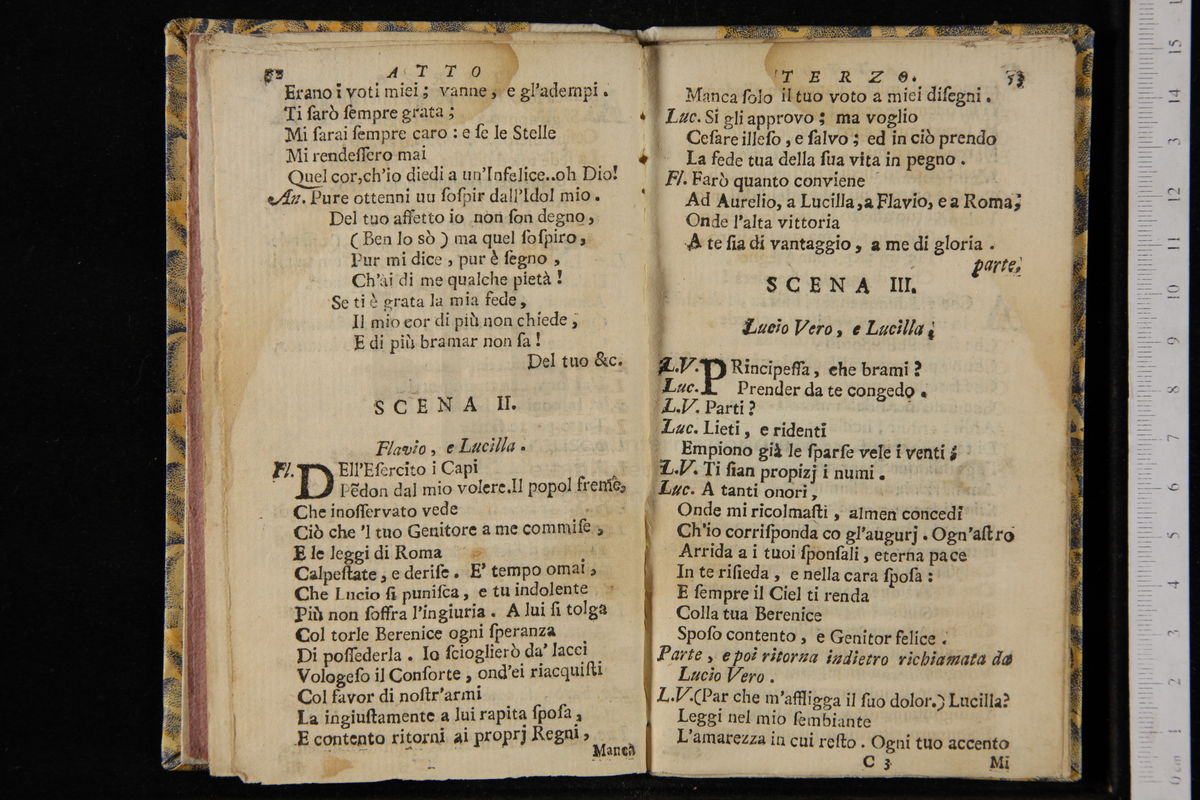 52 ATTO
Erano i voti miei; vanne, e gl'adempi.
Ti sarò ſempre grata;
Mi ſarai ſempre caro: e ſe le Stelle
Mi rendeſſero mai
Quel cor, ch'io diedi a un'Infelice..oh Dio!
An. Pure ottenni uu ſoſpir dall'Idol mio.
Del tuo affetto io non ſon degno,
(Ben lo sò) ma quel ſoſpiro,
Pur mi dice, pur è ſegno,
Ch'ai di me qualche pietà!
Se ti è grata la mia fede,
Il mio cor di più non chiede,
E di più bramar non ſa!
Del tuo &c.
SCENA II.
Flavio, e Lucilla.
Fl. DEll'Eſercito i Capi
Pẽdon dal mio volere. Il popol freme,
Che inoſſervato vede
Ciò che 'l tuo Genitore a me commiſe,
E le leggi di Roma
Calpeſtate, e deriſe. E' tempo omai,
Che Lucio ſi puniſca, e tu indolente
Più non ſoffra l'ingiuria. A lui ſi tolga
Col torle Berenice ogni ſperanza
Di poſſederla. Io ſcioglierò da' lacci
Vologeſo il Conſorte, ond'ei riacquiſti
Col favor di noſtr'armi
La ingiuſtamente a lui rapita ſpoſa,
E contento ritorni ai proprj Regni,
Manca
TERZO. 53
Manca ſolo il tuo voto a miei diſegni.
Luc. Si gli approvo; ma voglio
Ceſare illeſo, e ſalvo; ed in ciò prendo
La fede tua della ſua vita in pegno.
Fl. Farò quanto conviene
Ad Aurelio, a Lucilla, a Flavio, e a Roma;
Onde l'alta vittoria
A te ſia di vantaggio, a me di gloria.
parte,
SCENA III.
Lucio Vero, e Lucilla;
L.V. PRincipeſſa, che brami?
Luc. Prender da te congedo.
L.V. Parti?
Luc. Lieti, e ridenti
Empiono già le ſparſe vele i venti;
L.V. Ti ſian propizj i numi.
Luc. A tanti onori,
Onde mi ricolmaſti, almen concedi
Ch'io corriſponda co gl'augurj. Ogn'aſtro
Arrida a i tuoi ſponſali, eterna pace
In te riſieda, e nella cara ſpoſa:
E ſempre il Ciel ti renda
Colla tua Berenice
Spoſo contento, e Genitor felice.
Parte, e poi ritorna indietro richiamata da
Lucio Vero.
L.V. (Par che m'affligga il ſuo dolor.) Lucilla?
Leggi nel mio ſembiante
L'amarezza in cui reſto. Ogni tuo accento
C 3 Mi
0 cm 1 2 3 4 5 6 7 8 9 10 11 12 13 14 15